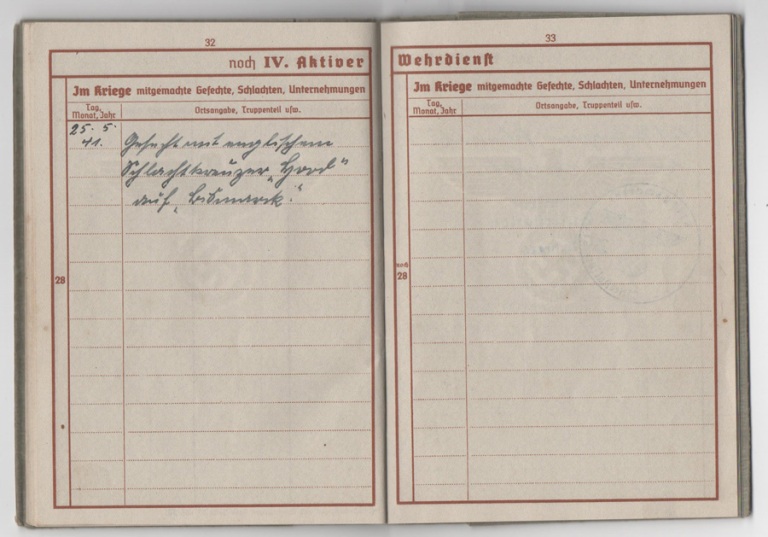 32
noch IV. Aktiver
Im Kriege mitgemachte Gefechte, Schlachten, Unternehmungen
Tag, Monat, Jahr
Ortsangabe, Truppenteil usw.
25. 5.
41.
Gefecht mit englischem
Schlachtkreuzer „Hood"
auf „Bismarck".
28
33
Wehrdienst
Im Kriege mitgemachte Gefechte, Schlachten, Unternehmungen
Tag, Monat, Jahr
Ortsangabe, Truppenteil usw.
noch
28